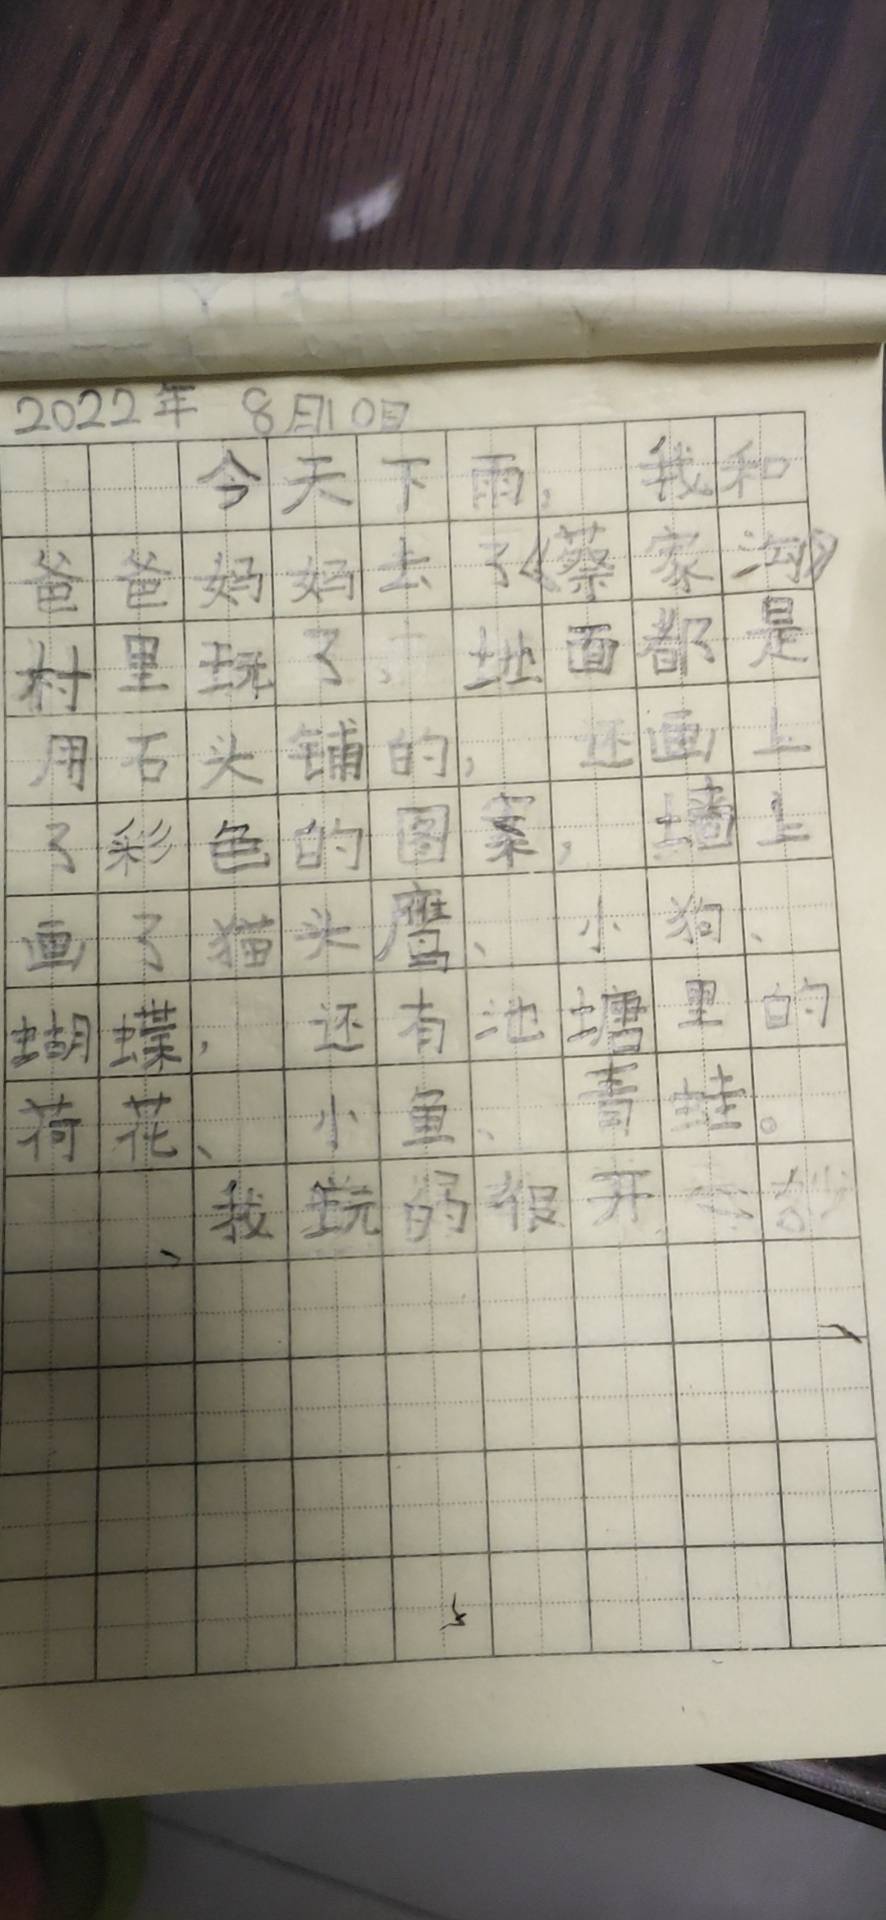 2022年 8月10日
今天下雨，我和
爸爸妈妈去了《蔡家沟》
村里玩了，地面都是
用石头铺的，还画上
了彩色的图案，墙上
画了猫头鹰、小狗、
蝴蝶，还有池塘里的
荷花、小鱼、青蛙。
我玩的很开